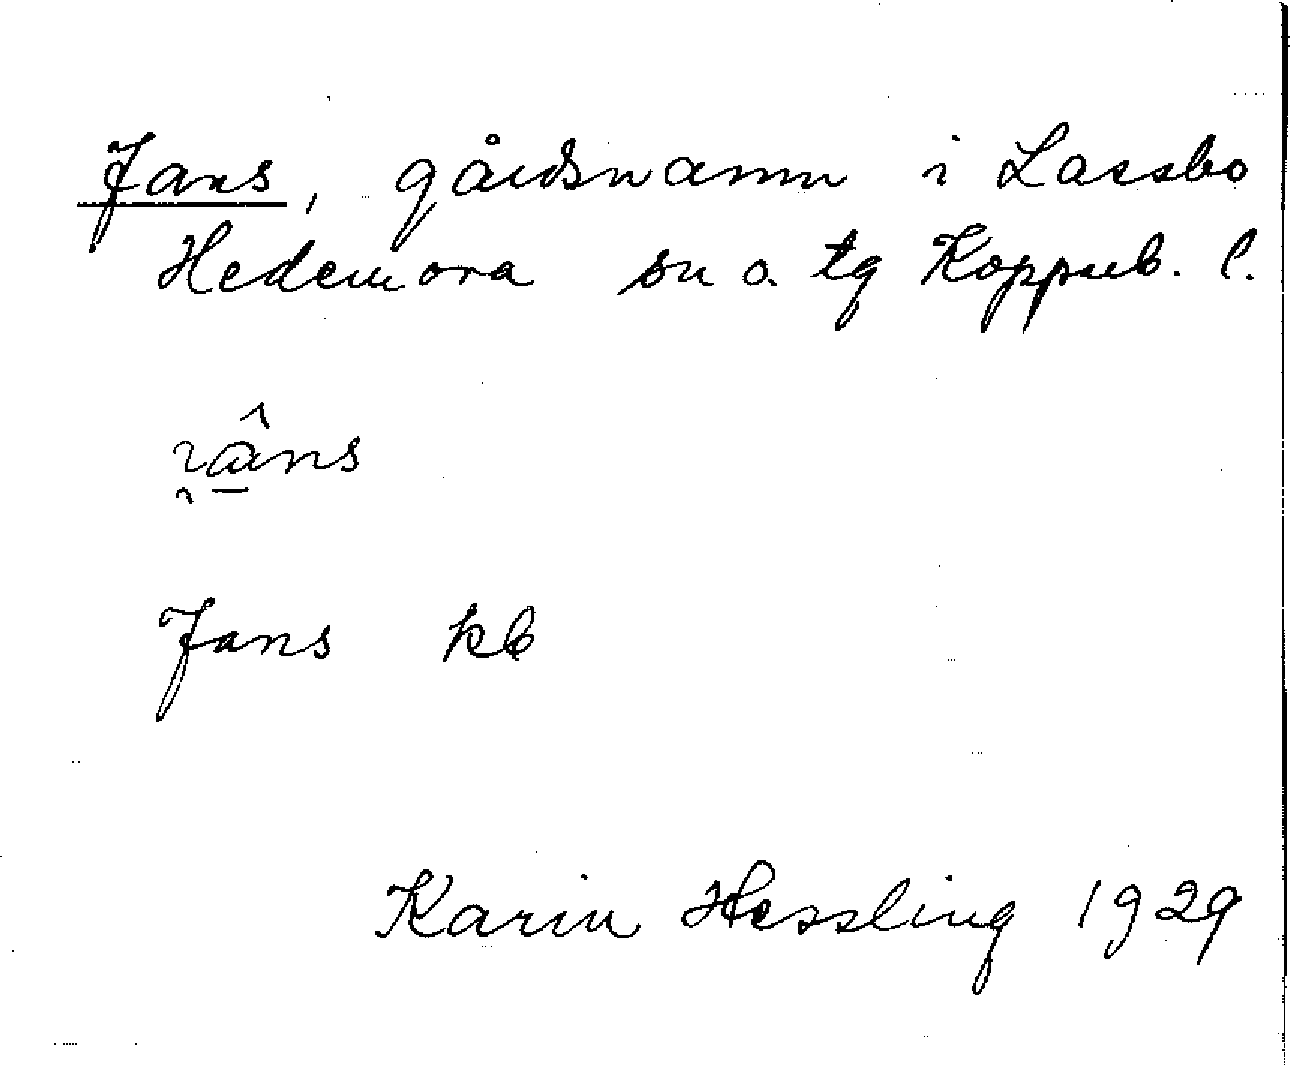 Jans, gårdsnamn i Lassbo
Hedemora sn o. tg Kopparb. l.
Jans kb
Karin Hessling 1929